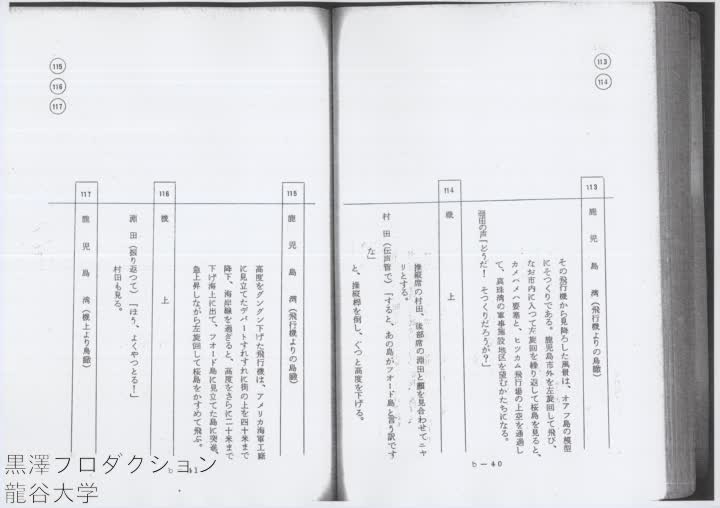 113
114
113 鹿児島湾(飛行機よりの鳥瞰)
その飛行機から見降ろした風景は、オアフ島の模型
にそつくりである。鹿児島市外を左旋回して飛び、
なお市内に入つて左旋回を繰り返して桜島を見ると、
カメハメハ要塞と、ヒツカム飛行場の上空を通過し
て、真珠湾の軍事施設地区を望むかたちになる。
淵田の声「どうだ! そつくりだろうが?」
114 機上
操縦席の村田、後部席の淵田と顔を見合わせてニヤ
リとする。
村田(伝声管で)「すると、あの島がフオード島と言う訳です
な」
と、操縦桿を倒し、ぐつと高度を下げる。
b—40
115
116
117
115 鹿児島湾(飛行機よりの鳥瞰)
高度をグングン下げた飛行機は、アメリカ海軍工廠
に見立てたデパートすれすれに街の上を四十米まで
降下、海岸線を過ぎると、高度をさらに二十米まで
下げ海上に出て、フオード島に見立てた島に突進、
急上昇しながら左旋回して桜島をかすめて飛ぶ。
116 機上
淵田(振り返つて)「ほう、よくやつとる!」
村田も見る。
117 鹿児島湾(機上より鳥瞰)
b 41
黒澤プロダクション
龍谷大学